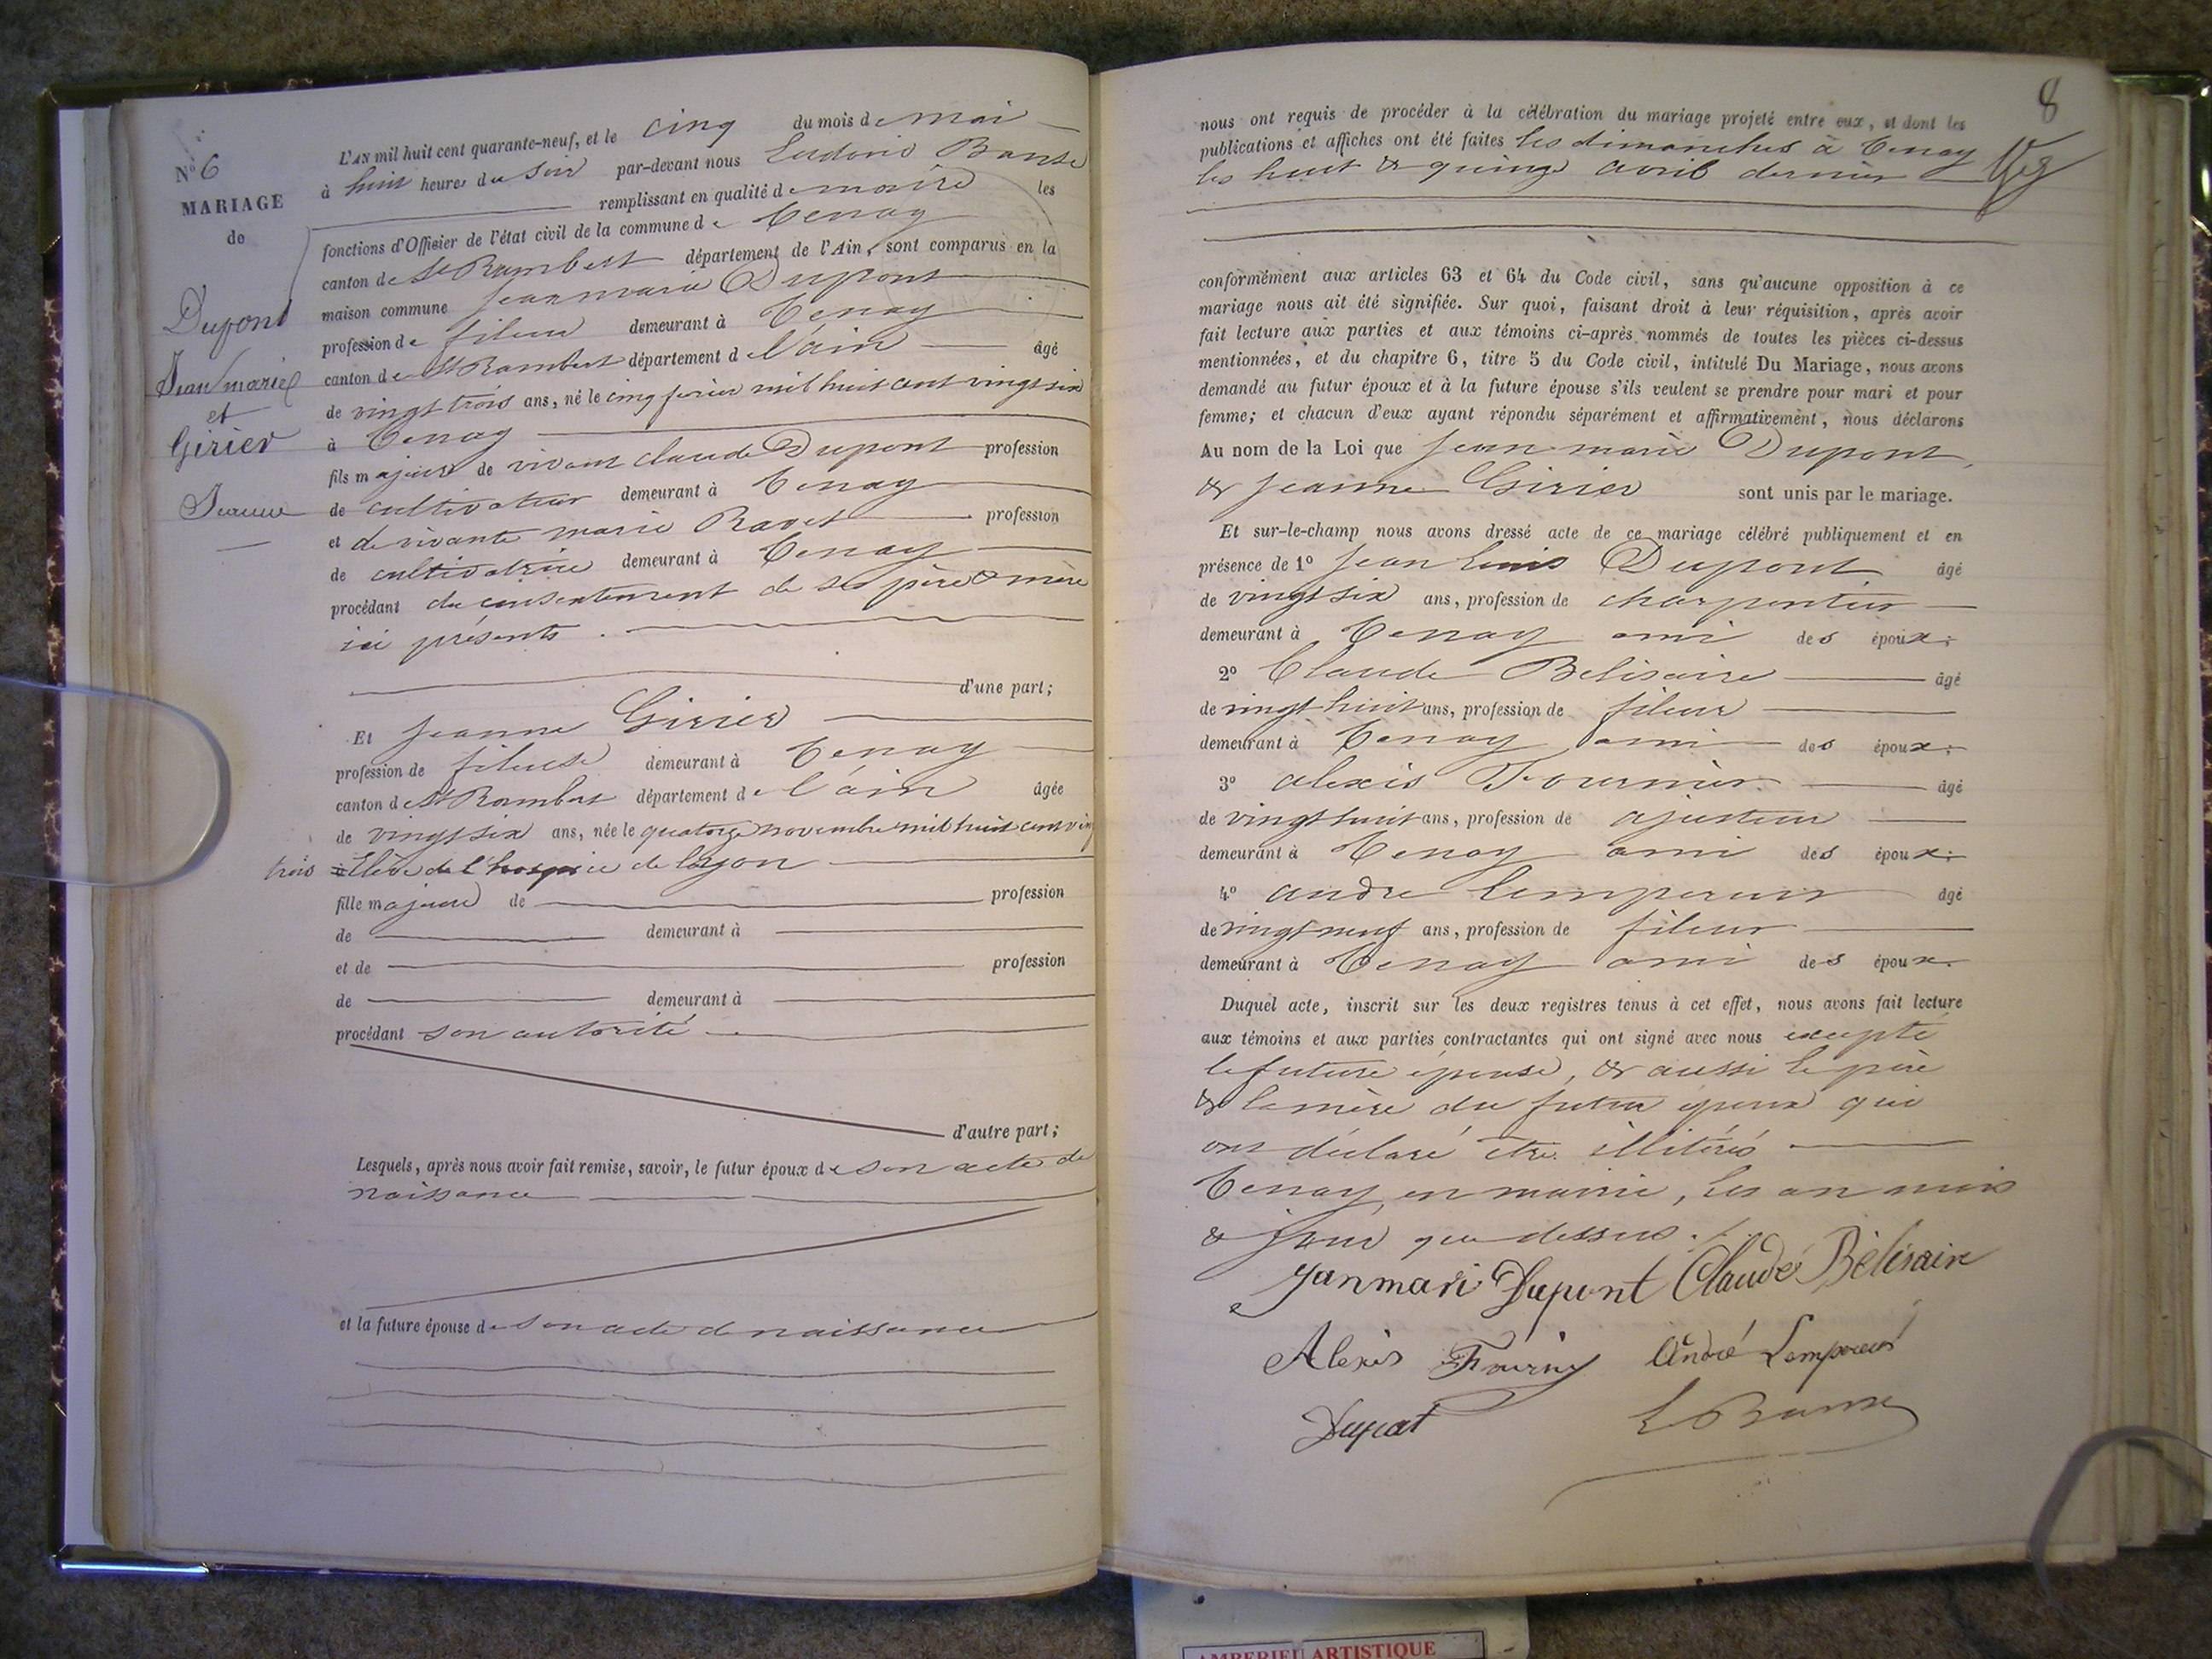 N° 6
MARIAGE
de
Dupont
Jean marie
et
Girier
Jeanne
L'AN mil huit cent quarante-neuf, et le cinq du mois de mai
à huit heures du soir par-devant nous Ludovic
remplissant en qualité de maire les
fonctions d'Officier de l'état civil de la commune de Tenay
canton de St Rambert département de l'Ain, sont comparus en la
maison commune Jean marie Dupont
profession de fileur demeurant à Tenay
canton de St Rambert département de l'ain âgé
de vingt trois ans, né le cinq fevrier mil huit cent vingt six
à Tenay
fils majeur de vivant claude Dupont profession
de cultivateur demeurant à Tenay
et de vivante marie Ravet profession
de cultivatrice demeurant à Tenay
procédant du consentement de ses père & mère
ici présents.
d'une part;
Et Jeanne Girier
profession de fileuse demeurant à Tenay
canton de St Rambert département de l'ain âgée
de vingt six ans, née le quatorze novembre mil huit cent vingt
trois Elève de l'hospice de Lyon
fille majeure de profession
de demeurant à
et de profession
de demeurant à
procédant son autorité
d'autre part;
Lesquels, après nous avoir fait remise, savoir, le futur époux de son acte de
naissance
et la future épouse de son acte de naissance
8
nous ont requis de procéder à la célébration du mariage projeté entre eux, et dont les
publications et affiches ont été faites les dimanches à Tenay
les huit & quinze avril dernier
conformément aux articles 63 et 64 du Code civil, sans qu'aucune opposition à ce
mariage nous ait été signifiée. Sur quoi, faisant droit à leur réquisition, après avoir
fait lecture aux parties et aux témoins ci-après nommés de toutes les pièces ci-dessus
mentionnées, et du chapitre 6, titre 5 du Code civil, intitulé Du Mariage, nous avons
demandé au futur époux et à la future épouse s'ils veulent se prendre pour mari et pour
femme; et chacun d'eux ayant répondu séparément et affirmativement, nous déclarons
Au nom de la Loi que Jean marie Dupont,
& Jeanne Girier sont unis par le mariage.
Et sur-le-champ nous avons dressé acte de ce mariage célébré publiquement et en
présence de 1° Jean Louis Dupont âgé
de vingt six ans, profession de charpentier
demeurant à Tenay ami des époux;
2° Claude Belisaire âgé
de vingt huit ans, profession de fileur
demeurant à Tenay ami des époux;
3° alexis Fournier âgé
de vingt huit ans, profession de ajusteur
demeurant à Tenay ami des époux;
4° andre Lempereur âgé
de vingt neuf ans, profession de fileur
demeurant à Tenay ami des époux.
Duquel acte, inscrit sur les deux registres tenus à cet effet, nous avons fait lecture
aux témoins et aux parties contractantes qui ont signé avec nous excepté
la future épouse, & aussi le père
& la mère du futur époux qui
ont déclaré être illitérés
Tenay, en mairie, les an mois
& jour que dessus.
Janmari Dupont Claude Bélisaire
Alexis André Lempereur
AMBERIEU ARTISTIQUE